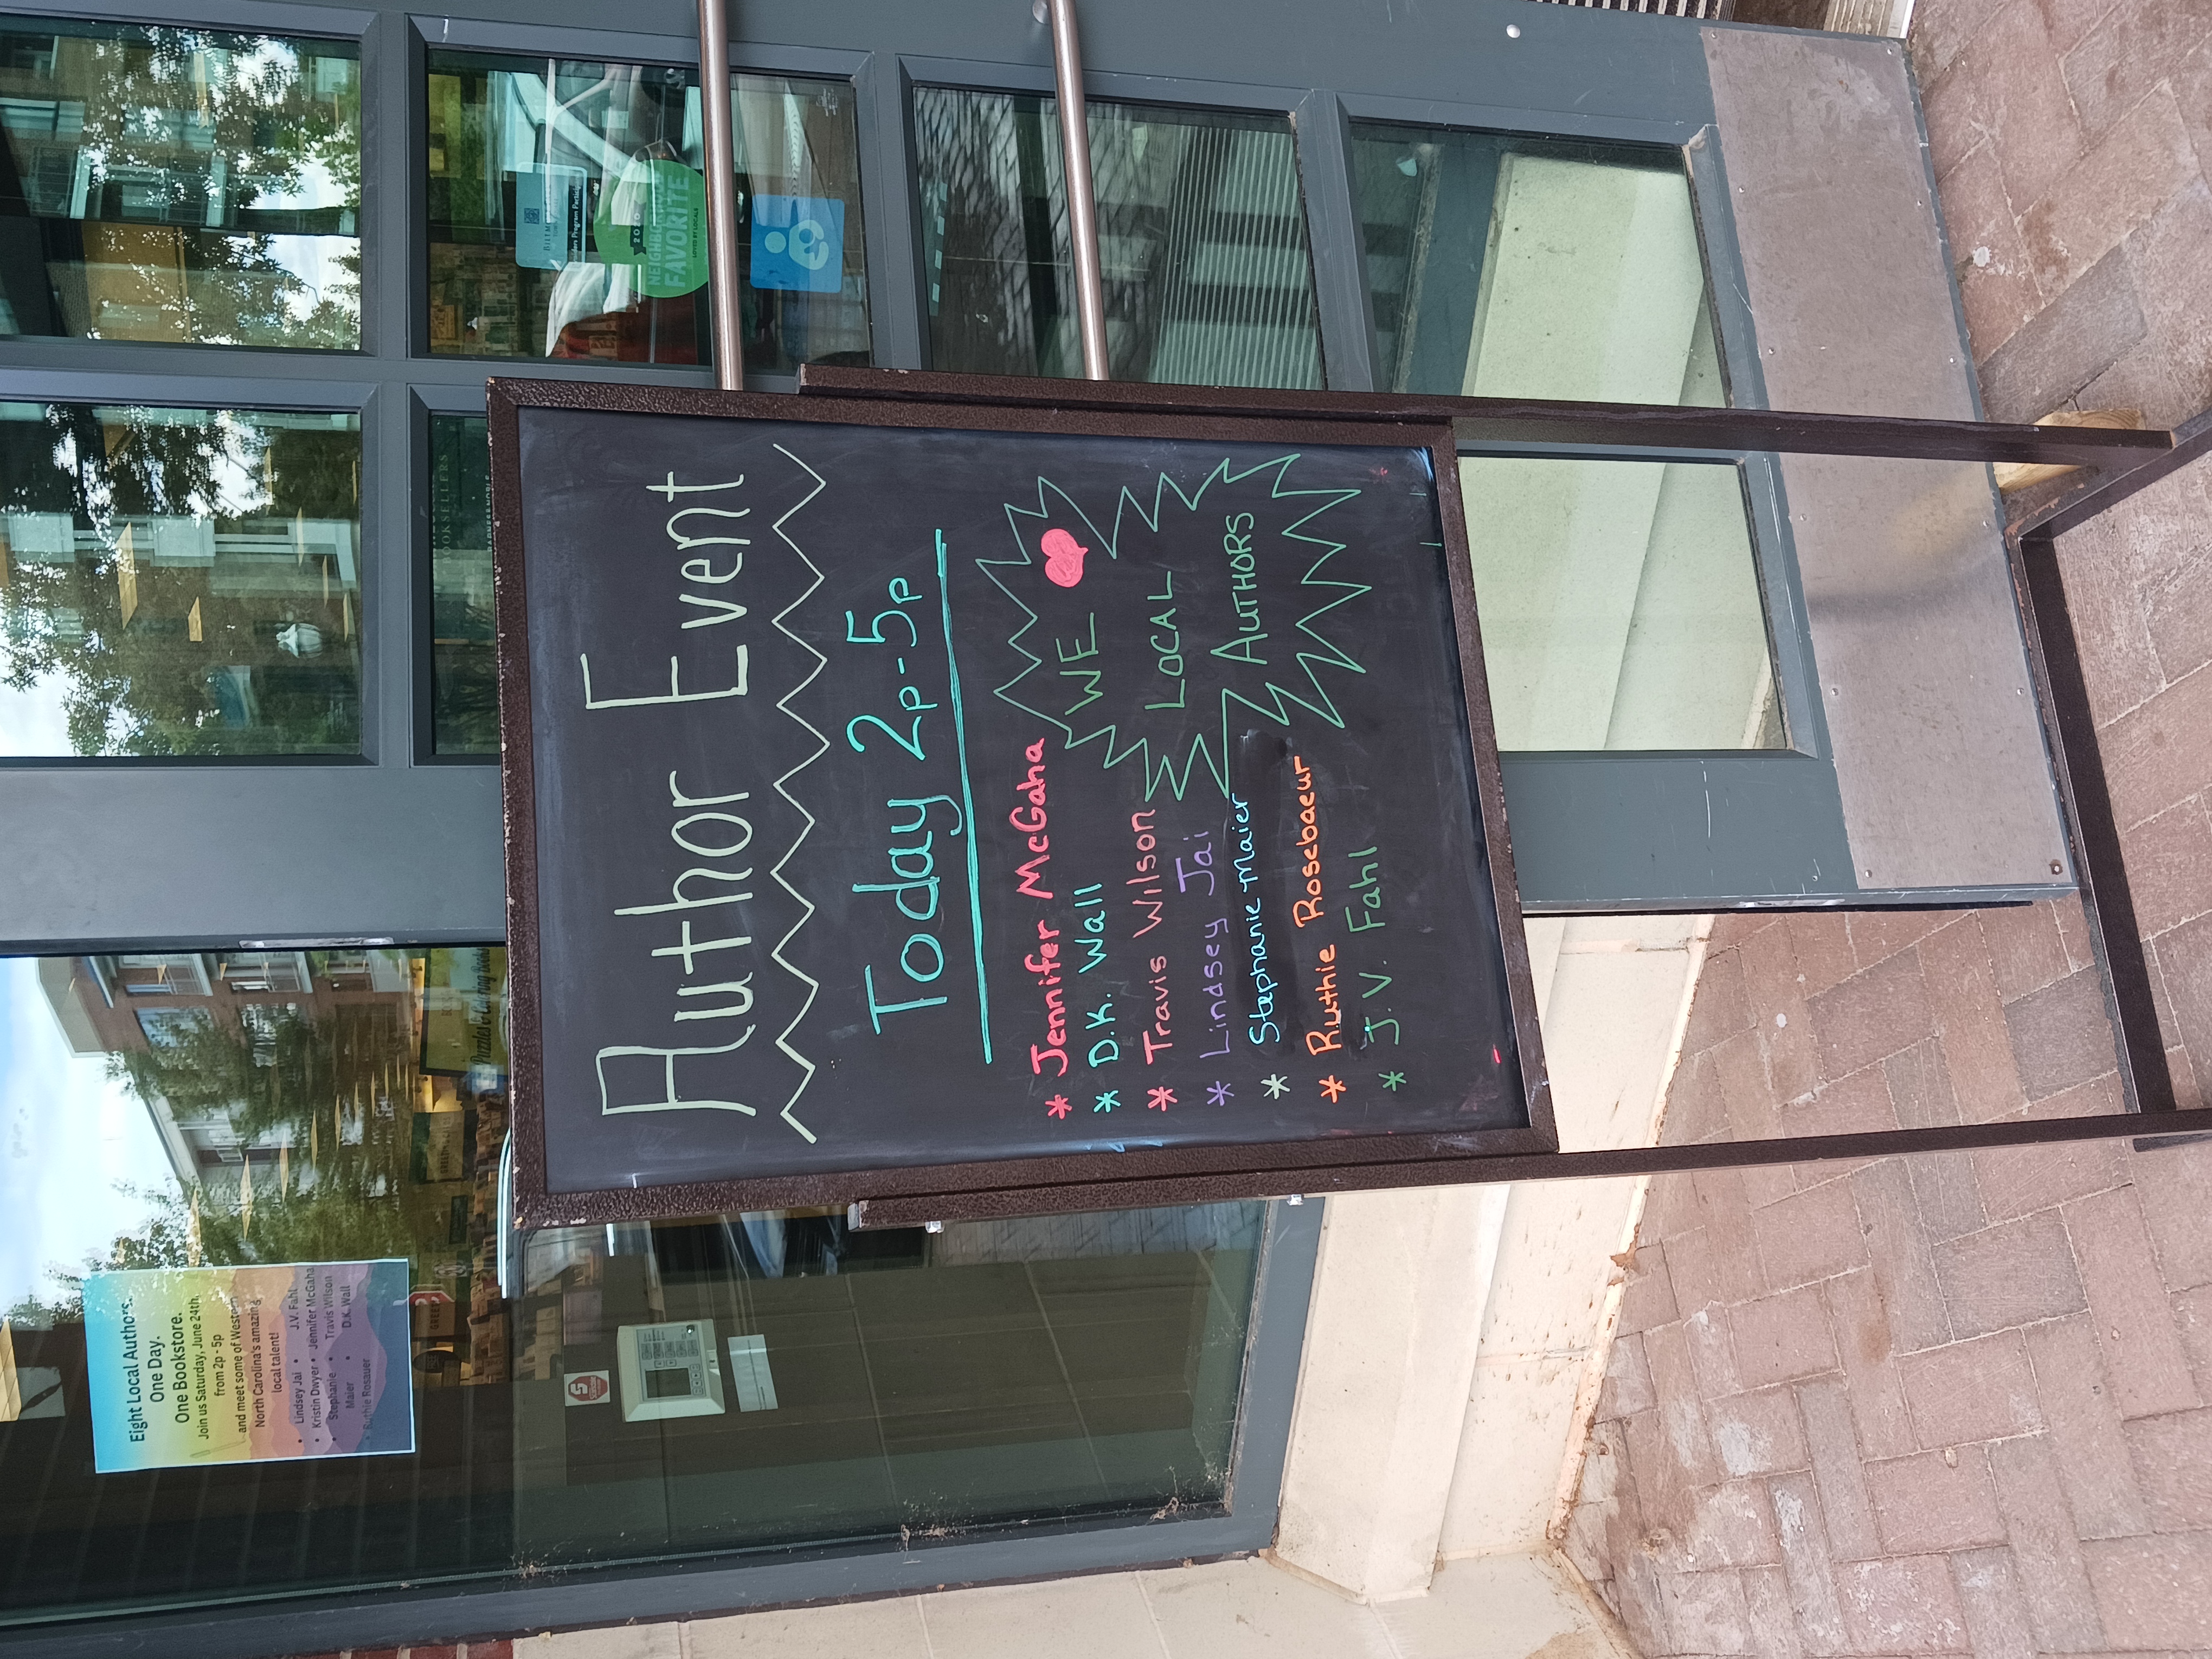 Author Event
Today 2p-5p
* Jennifer McGaha
* D.K. Wall
* Travis Wilson
* Lindsey Jai
* Stephanie Maier
* Ruthie Rosebaeur
* J.V. Fahl
WE
LOCAL
AUTHORS
Eight Local Authors.
One Day.
One Bookstore.
Join us Saturday, June 24th,
from 2p - 5p
and meet some of Western
North Carolina's amazing
local talent!
• Lindsey Jai • J.V. Fahl
• Kristin Dwyer • Jennifer McGaha
• Stephanie • Travis Wilson
Maier • D.K. Wall
• Ruthie Rosauer
2020
NEIGHBORHOOD
FAVORITE
LOVED BY LOCALS
BOOKSELLERS